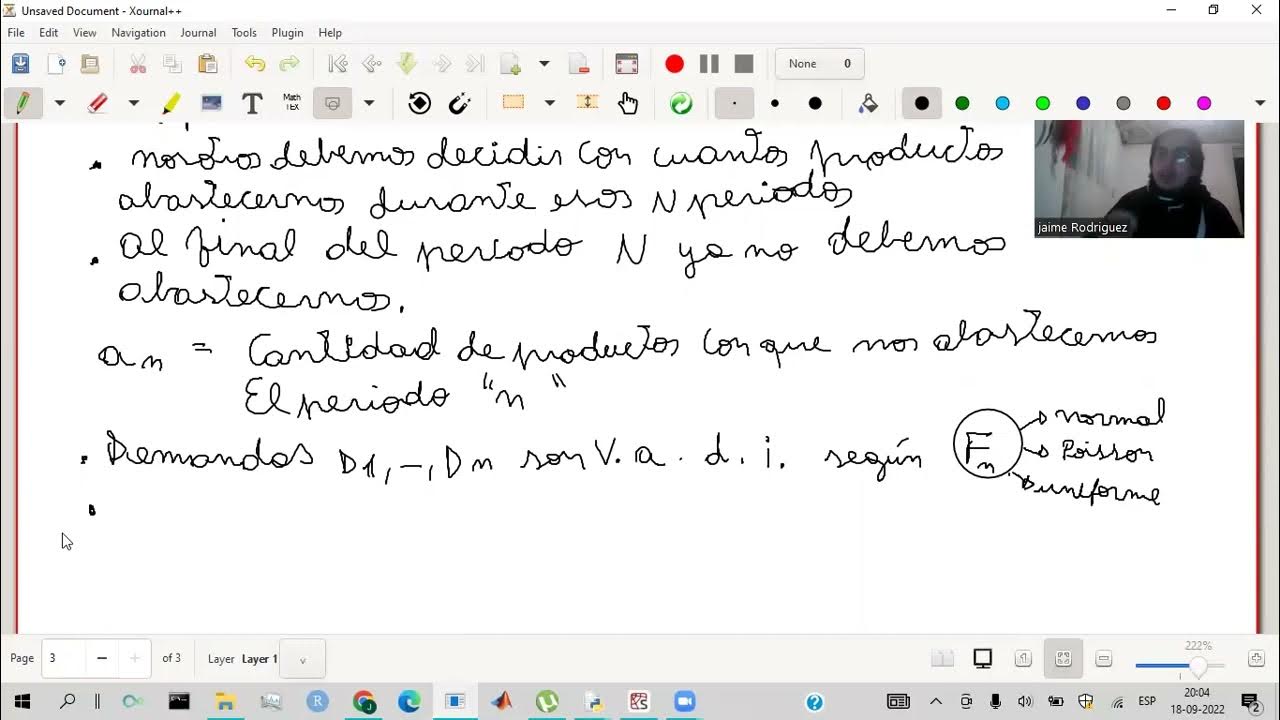 Unsaved Document - Xournal++
File Edit View Navigation Journal Tools Plugin Help
None 0
Math
TEX
nosotros debemos decidir con cuanto productos
abastecernos durante esos N periodos
al final del periodo N ya no debemos
abastecernos.
an = Cantidad de productos con que nos abastecemos
El periodo "n"
Demandas D1, -, Dn son V. a. d. i. según Fn
normal
Poisson
uniforme
jaime Rodriguez
Page 3 of 3 Layer Layer 1
222%
ESP
20:04
18-09-2022
2